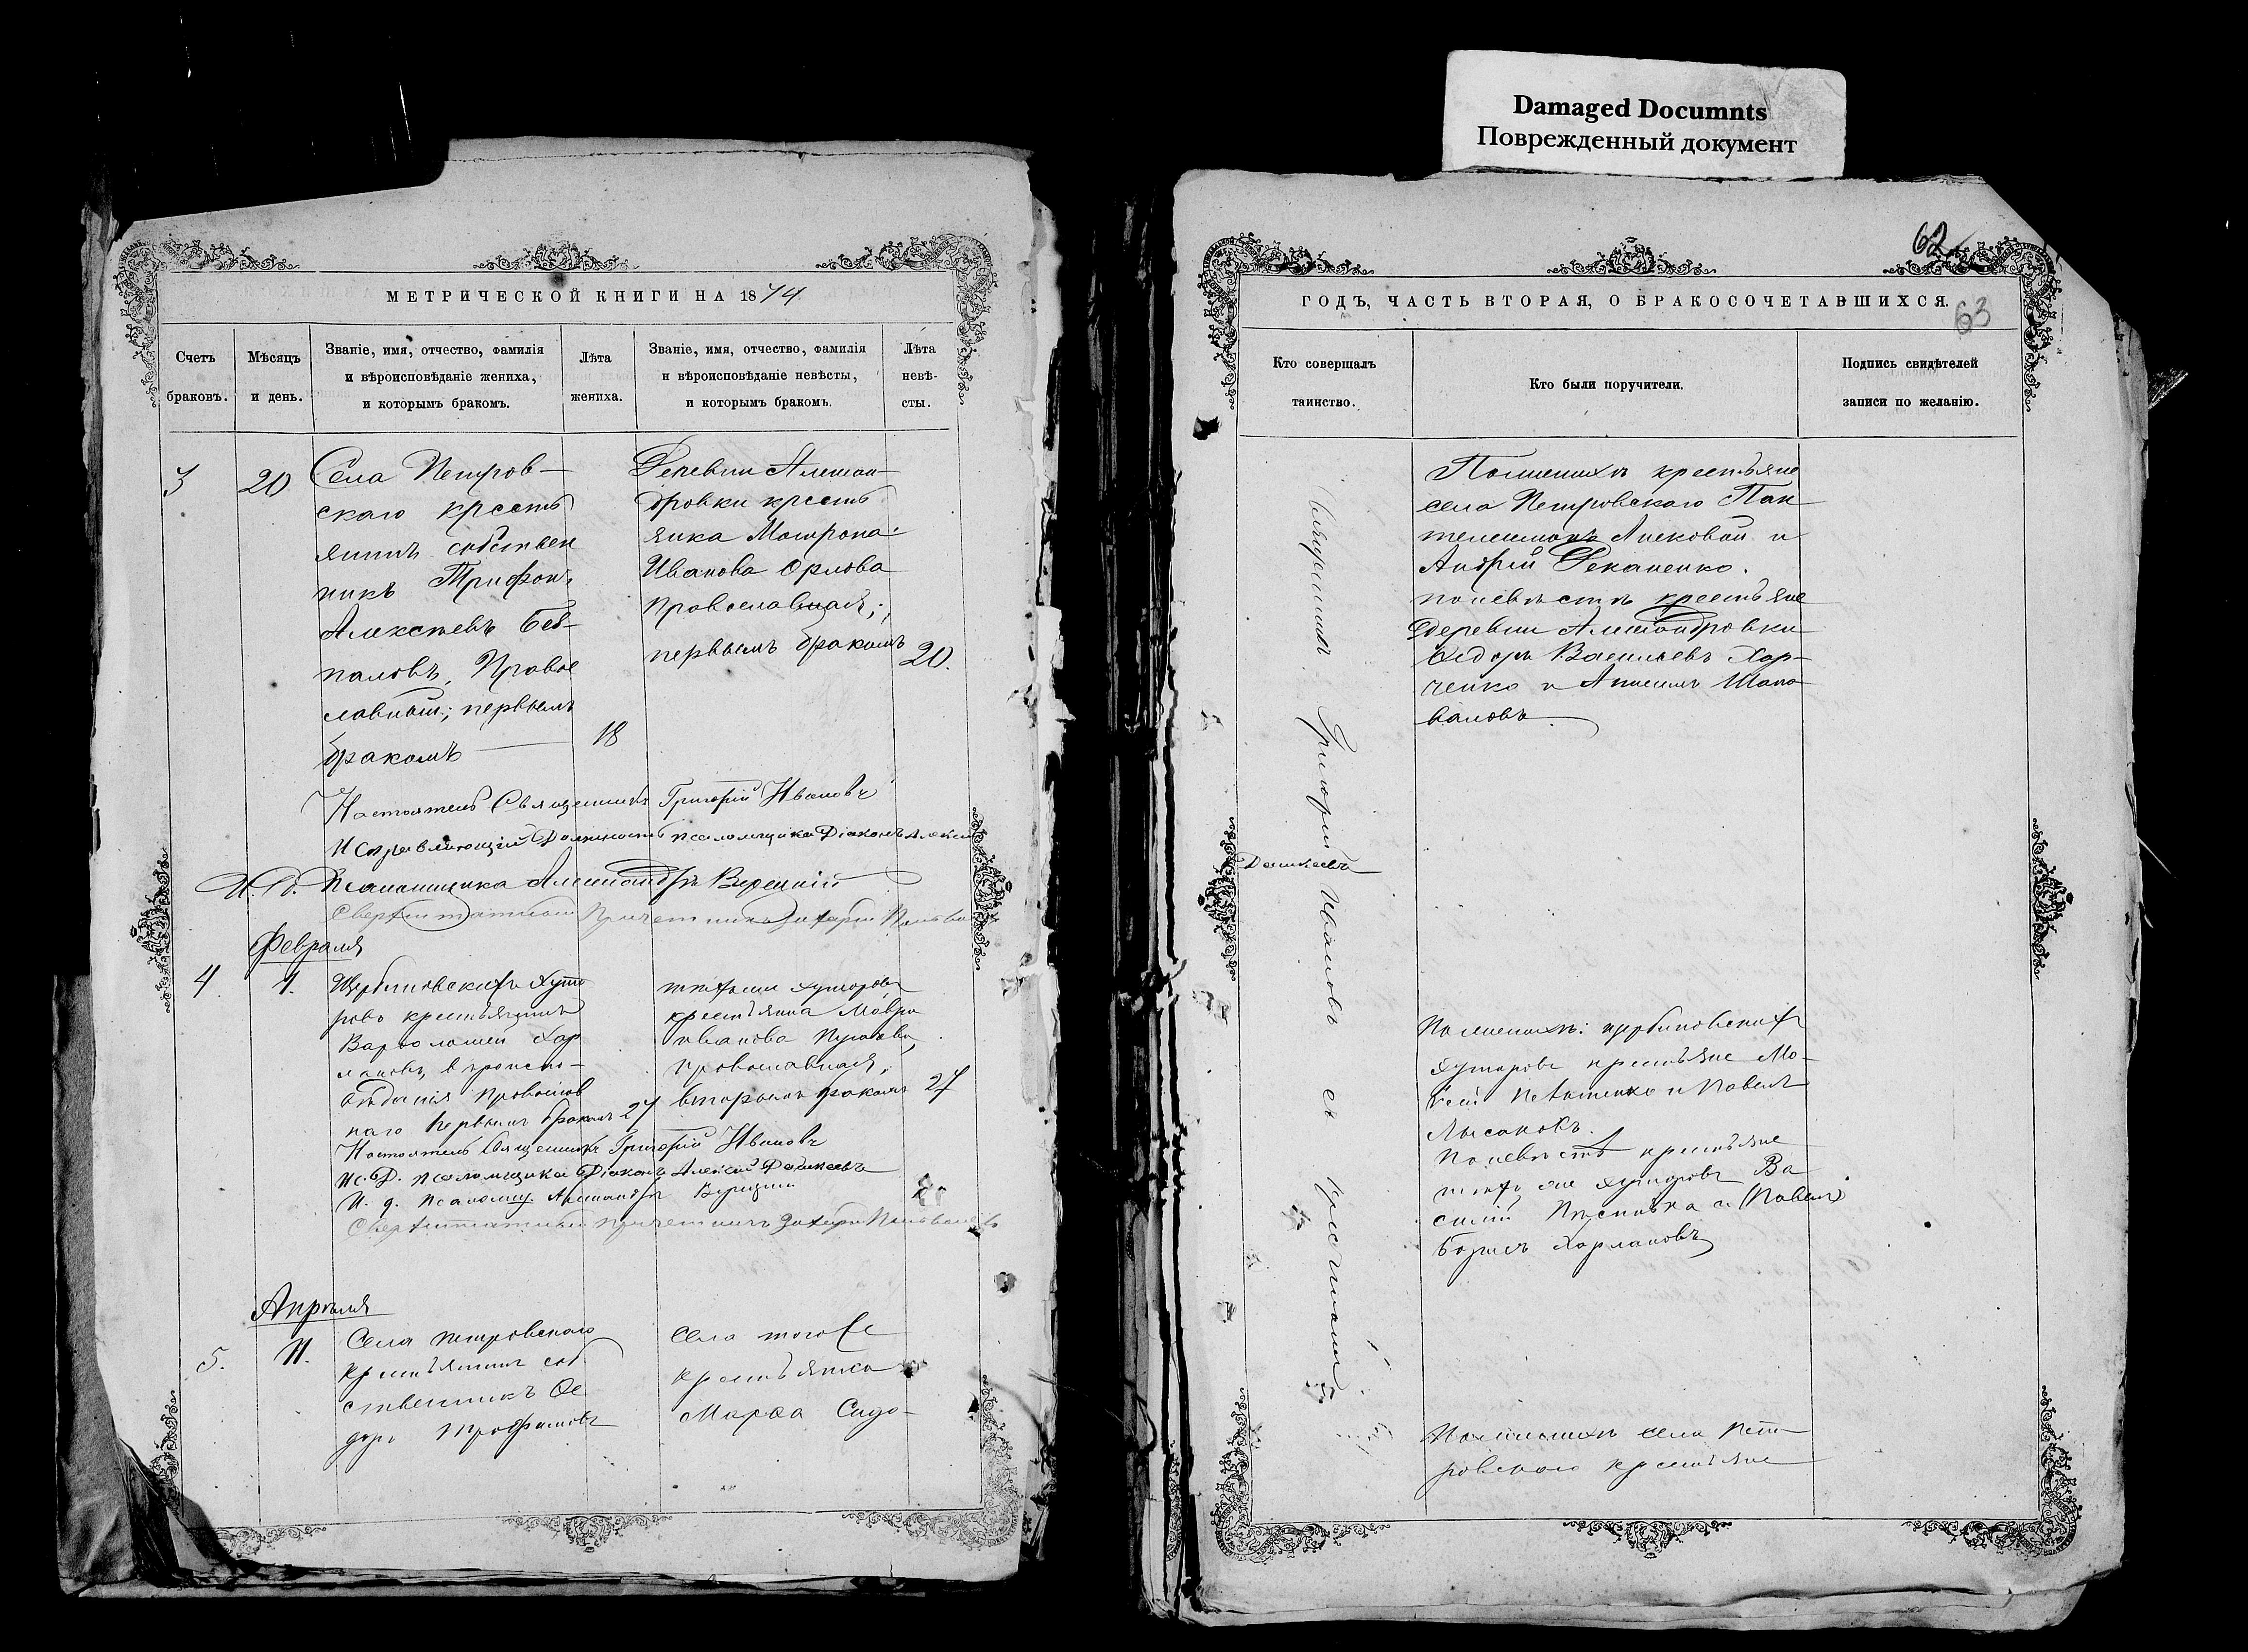 Damaged Documnts
Поврежденный документ
МЕТРИЧЕСКОЙ КНИГИ НА 1874
Счетъ браковъ.
Мѣсяцъ и день.
Званіе, имя, отчество, фамилія
и вѣроисповѣданіе жениха,
и которымъ бракомъ.
Лѣта жениха.
Званіе, имя, отчество, фамилія
и вѣроисповѣданіе невѣсты,
и которымъ бракомъ.
Лѣта невѣ-
сты.
3
20
Села Петров-
скаго кресть
янинъ собствен
никъ Трифонъ
Алексѣевъ
Правос
лавный; первымъ
бракомъ
18
Деревни Алексан-
дровки кресть
янка Мотрона
Иванова Орлова
Православная;
первымъ бракомъ
20.
Настоятель Священникъ Григорій Ивановъ
Исправляющій Должность псаломщика Діаконъ Алексѣй
И. д. Псаломщика Александръ
Сверхштатный Причетникъ Захарій
Февраля
4
1.
Щербиновскихъ Хуто
ровъ крестьянинъ
Варфоломей Хар
лановъ, вѣроиспо-
вѣданія Православ
наго первымъ бракомъ
27
тѣхъже хуторовъ
крестьянка Мавра
Иванова
православная,
вторымъ бракомъ
27
Настоятель Священникъ Григорій Ивановъ
Ис. Д. псаломщика Діаконъ Алексѣй Дашкеевъ
И. д. Псаломщ. Александръ
Сверхштатный причетникъ Захарій
Апрѣля
5.
11.
Села Петровскаго
крестьянинъ соб
ственникъ Ѳе
доръ Трофимовъ
Села тогоже
крестьянка
Марѳа Сидо-
62
ГОДЪ, ЧАСТЬ ВТОРАЯ, О БРАКОСОЧЕТАВШИХСЯ.
63
Кто совершалъ
таинство.
Кто были поручители.
Подпись свидѣтелей
записи по желанію.
Священникъ Григорій Ивановъ съ причтомъ
Дашкеевъ
По женихѣ крестьяне
села Петровскаго Пан-
телеимонъ и
Андрей Деканенко.
по невѣстѣ крестьяне
деревни Александровки
Ѳедоръ Васильевъ Хар-
ченко и Шапо
валовъ.
По женихѣ: щербиновскихъ
хуторовъ крестьяне Мо-
и Павелъ
Лысаковъ.
По невѣстѣ крестьяне
тѣхъ же хуторовъ Ва
силій и (Павелъ)
Борисъ Харлановъ
По женихѣ села Пет-
ровскаго крестьяне